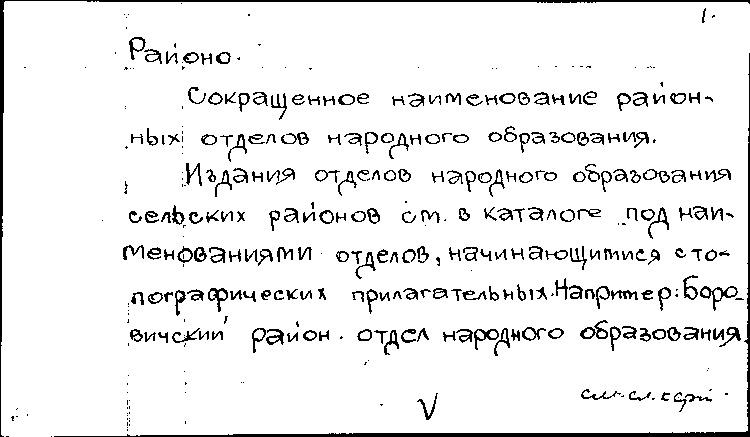 1.
Районо.
Сокращенное наименование район-
ных отделов народного образования.
Издания отделов народного образования
сельских районов см. в каталоге под наи-
менованиями отделов, начинающимися с то-
пографических прилагательных. Например: Боро-
вичский район. отдел народного образования.
см. сл. карт.
V